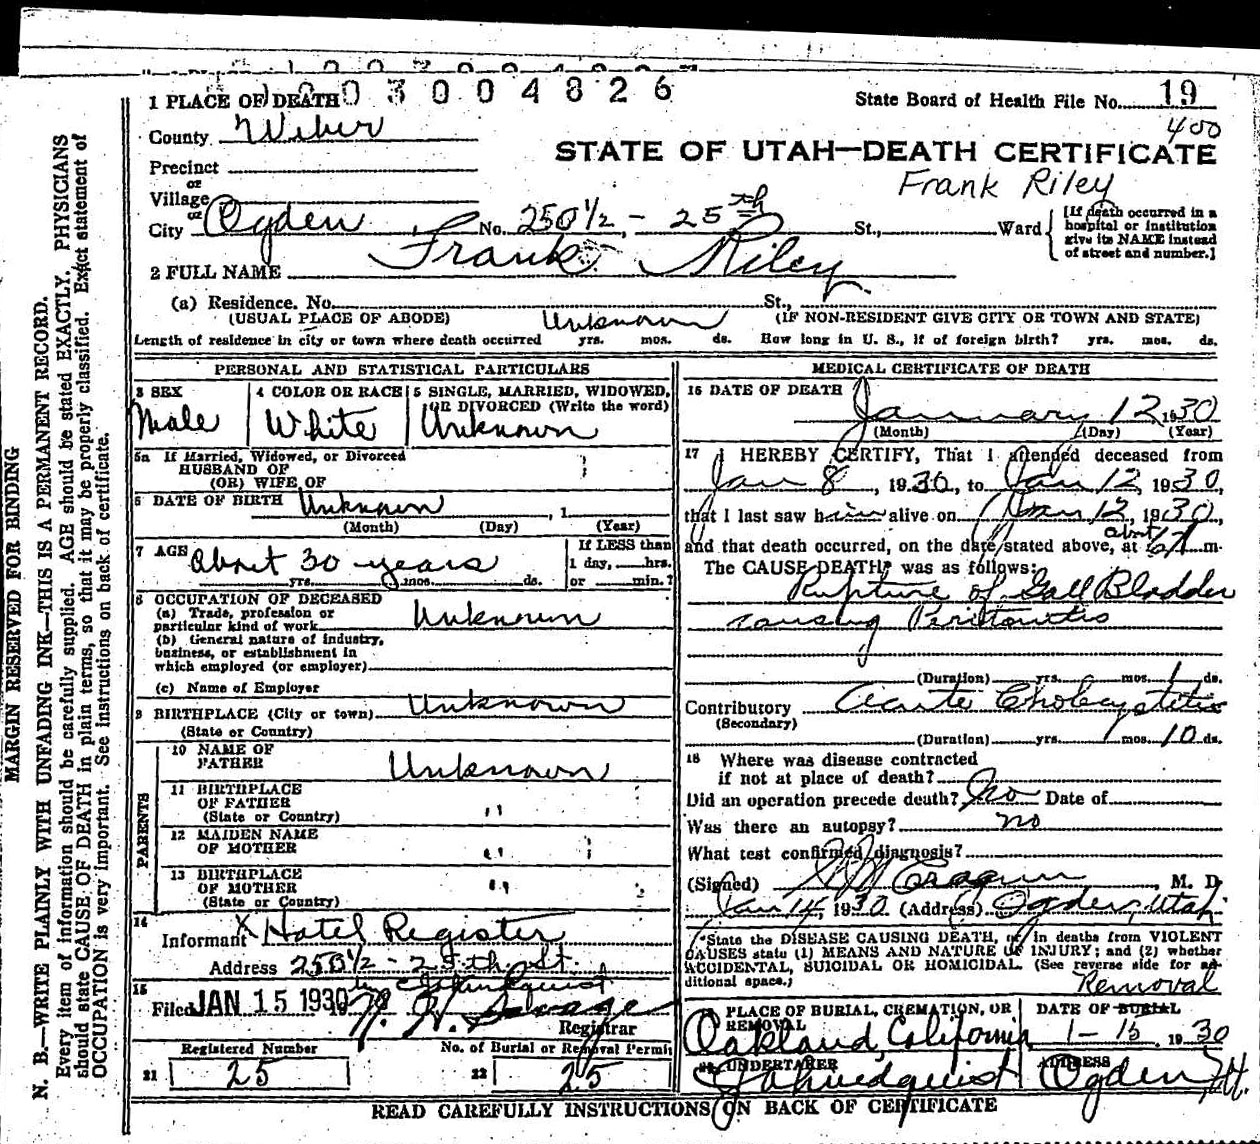 1 PLACE OF DEATH 003004826 State Board of Health File No. 19
400
County Weber
STATE OF UTAH—DEATH CERTIFICATE
Precinct
or
Village
Frank Riley
or
City Ogden, No. 250½ - 25th St., Ward [If death occurred in a hospital or institution give its NAME instead of street and number.]
2 FULL NAME Frank Riley
(a) Residence. No. St.,
(USUAL PLACE OF ABODE) Unknown (IF NON-RESIDENT GIVE CITY OR TOWN AND STATE)
Length of residence in city or town where death occurred yrs. mos. ds. How long in U. S., if of foreign birth? yrs. mos. ds.
PERSONAL AND STATISTICAL PARTICULARS
3 SEX
Male
4 COLOR OR RACE
White
5 SINGLE, MARRIED, WIDOWED,
OR DIVORCED (Write the word)
Unknown
5a If Married, Widowed, or Divorced
HUSBAND OF
(OR) WIFE OF
6 DATE OF BIRTH Unknown, 1
(Month) (Day) (Year)
7 AGE About 30 years
yrs. mos. ds.
If LESS than
1 day, hrs.
or min.?
8 OCCUPATION OF DECEASED
(a) Trade, profession or
particular kind of work Unknown
(b) General nature of industry,
business, or establishment in
which employed (or employer)
(c) Name of Employer
9 BIRTHPLACE (City or town) Unknown
(State or Country)
PARENTS
10 NAME OF
FATHER Unknown
11 BIRTHPLACE
OF FATHER
(State or Country) "
12 MAIDEN NAME
OF MOTHER "
13 BIRTHPLACE
OF MOTHER
(State or Country) "
14
Informant X Hotel Register
Address 250½ - 25th. St.
15
Filed JAN 15 1930
Registrar
Registered Number
21 25
No. of Burial or Removal Permit
22 25
MEDICAL CERTIFICATE OF DEATH
16 DATE OF DEATH
January 12, 1930
(Month) (Day) (Year)
17 I HEREBY CERTIFY, That I attended deceased from
Jan 8, 1930, to Jan 12, 1930,
that I last saw him alive on Jan 12, 1930,
and that death occurred, on the date stated above, at about m.
The CAUSE DEATH* was as follows:
Rupture of Gall Bladder
causing Peritonitis
(Duration) yrs. mos. 1 ds.
Contributory Acute Cholecystitis
(Secondary)
(Duration) yrs. mos. 10 ds.
18 Where was disease contracted
if not at place of death?
Did an operation precede death? No Date of
Was there an autopsy? no
What test confirmed diagnosis?
(Signed) , M. D.
Jan 14, 1930 (Address) Ogden, Utah
*State the DISEASE CAUSING DEATH, or in deaths from VIOLENT
CAUSES state (1) MEANS AND NATURE OF INJURY; and (2) whether
ACCIDENTAL, SUICIDAL OR HOMICIDAL. (See reverse side for ad-
ditional space.)
Removal
PLACE OF BURIAL, CREMATION, OR
REMOVAL
Oakland, California
DATE OF BURIAL
1-15, 1930
UNDERTAKER
ADDRESS
Ogden Ut.
READ CAREFULLY INSTRUCTIONS ON BACK OF CERTIFICATE
MARGIN RESERVED FOR BINDING
N. B.—WRITE PLAINLY WITH UNFADING INK—THIS IS A PERMANENT RECORD.
Every item of information should be carefully supplied. AGE should be stated EXACTLY. PHYSICIANS
should state CAUSE OF DEATH in plain terms, so that it may be properly classified. Exact statement of
OCCUPATION is very important. See instructions on back of certificate.